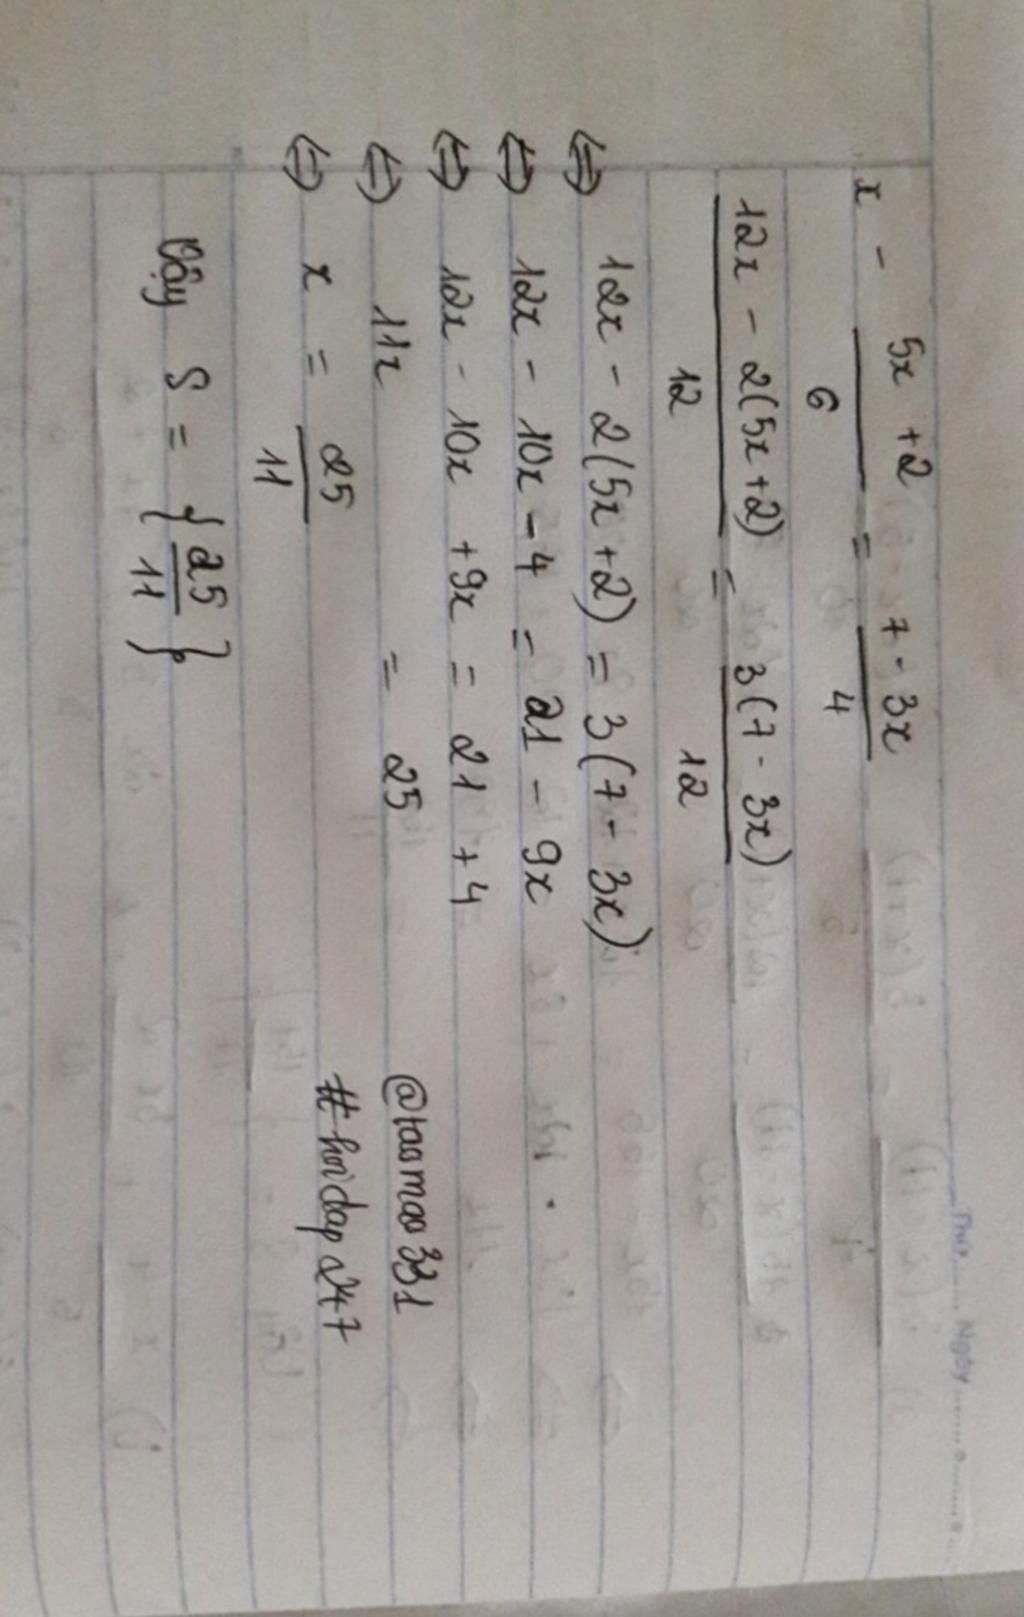 Thứ...... Ngày..........
x - (5x + 2)/6 = (7 - 3x)/4
(12x - 2(5x + 2))/12 = (3(7 - 3x))/12
⇔ 12x - 2(5x + 2) = 3(7 - 3x)
⇔ 12x - 10x - 4 = 21 - 9x
⇔ 12x - 10x + 9x = 21 + 4
⇔ 11x = 25
⇔ x = 25/11
Vậy S = {25/11}
@taomao331
#hoidap247